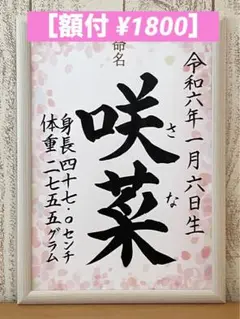 [額付 ¥1800]
命名
令和六年一月六日生
咲菜
さな
身長四十七.〇センチ
体重二七五五グラム